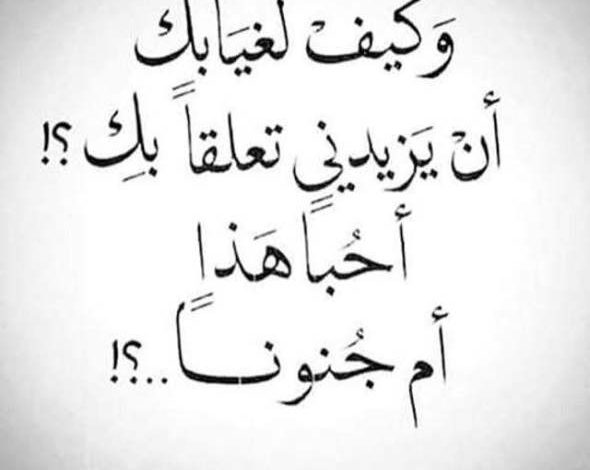 وَكيفْ لغيَابك
أنْ يَزيدني تعلقاً بكِ ؟!
أحُباً هَذا
أم جُنونـاً ..؟!